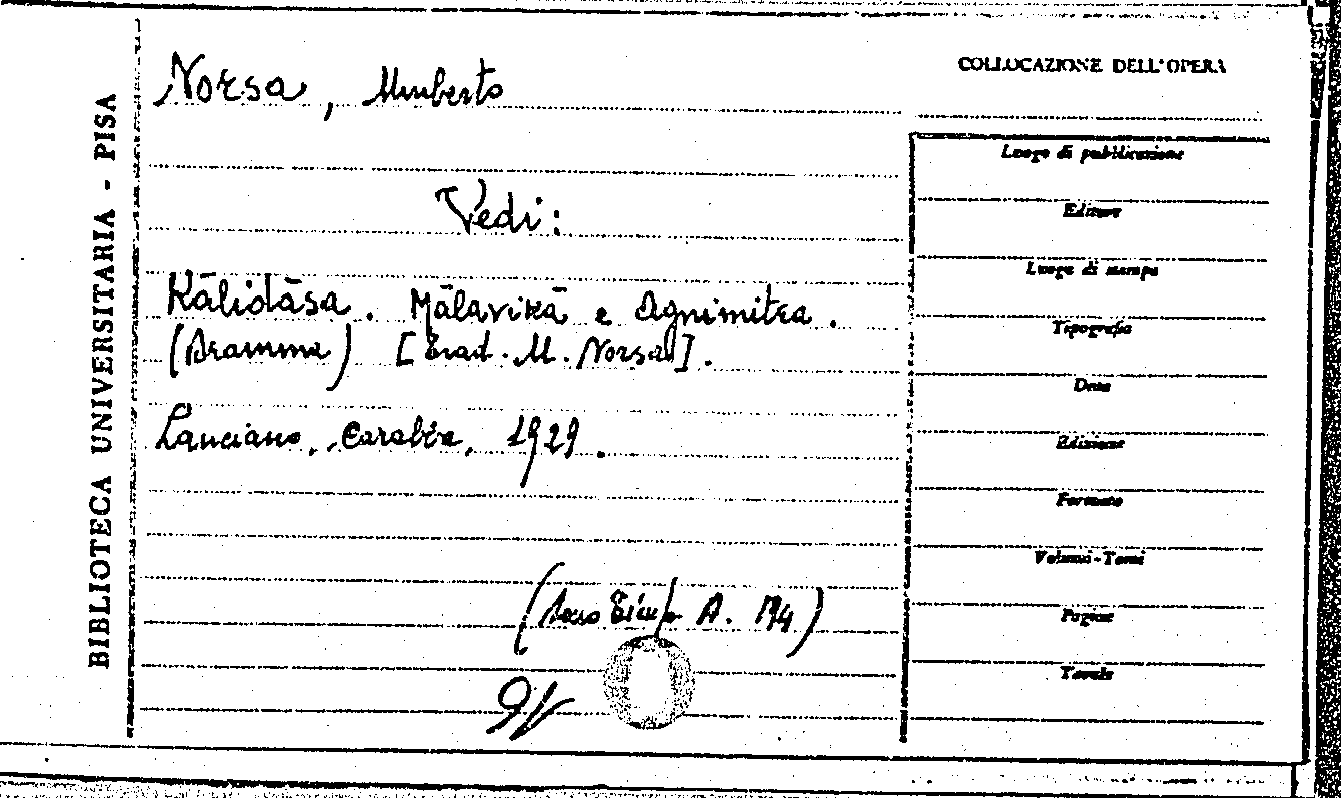 BIBLIOTECA UNIVERSITARIA - PISA
Norsa, Umberto
Vedi:
Kālidāsa. Mālavikā e Agnimitra.
(Dramma) [Trad. U. Norsa].
Lanciano, Carabba, 1929.
A.
COLLOCAZIONE DELL'OPERA
Luogo di pubblicazione
Editore
Luogo di stampa
Tipografia
Data
Edizione
Formato
Volumi - Tomi
Pagine
Tavole